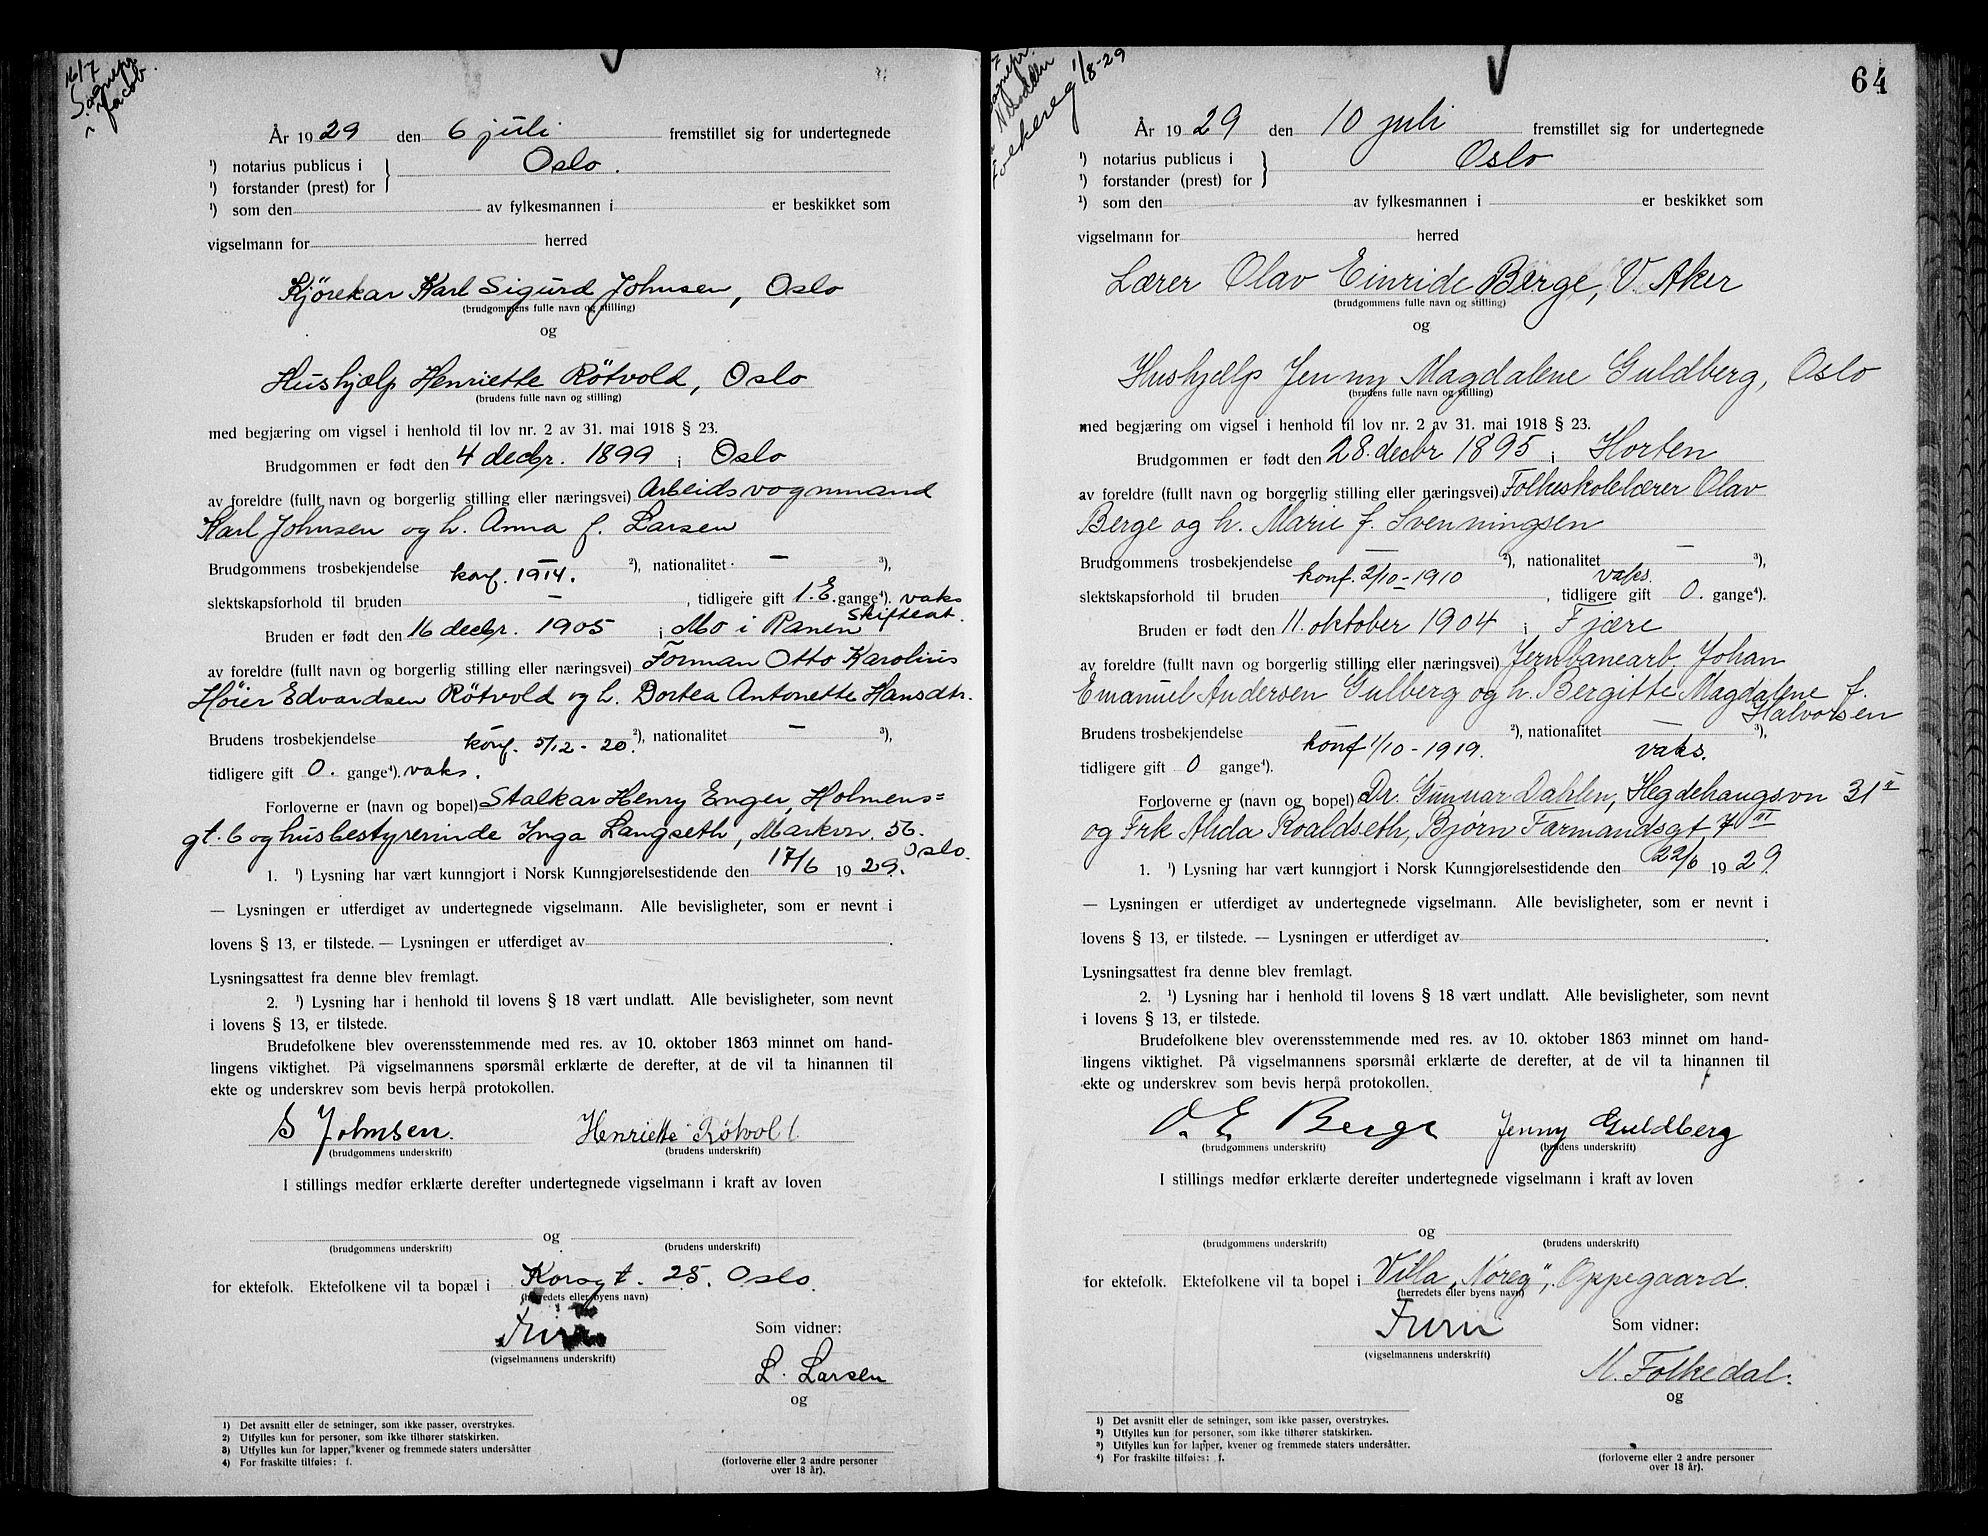 16/7
Sognepr.
i Jacob.
År 1929 den 6 juli fremstillet sig for undertegnede
¹) notarius publicus i Oslo.
¹) forstander (prest) for
¹) som den av fylkesmannen i er beskikket som
vigselmann for herred
Kjørekar Karl Sigurd Johnsen, Oslo
(brudgommens fulle navn og stilling)
og
Hushjælp Henriette Røtvold, Oslo
(brudens fulle navn og stilling)
med begjæring om vigsel i henhold til lov nr. 2 av 31. mai 1918 § 23.
Brudgommen er født den 4 decbr. 1899 i Oslo
av foreldre (fullt navn og borgerlig stilling eller næringsvei) Arbeidsvognmand
Karl Johnsen og h. Anna f. Larsen
Brudgommens trosbekjendelse konf. 1914. ²), nationalitet — ³),
slektskapsforhold til bruden — , tidligere gift 1. E. gange⁴). vaks
Skifteat.
Bruden er født den 16 decbr. 1905 i Mo i Ranen
av foreldre (fullt navn og borgerlig stilling eller næringsvei) Forman Otto Karolius
Høier Edvardsen Røtvold og h. Dortea Antonette Hansdtr.
Brudens trosbekjendelse konf. 5/12 - 20. ²), nationalitet — ³),
tidligere gift 0. gange⁴). vaks.
Forloverne er (navn og bopel) Stalkar Henry Enger, Holmens=
gt. 6 og husbestyrerinde Inga Langseth, Markvn. 56.
Oslo.
1. ¹) Lysning har vært kunngjort i Norsk Kunngjørelsestidende den 17/6 1929.
— Lysningen er utferdiget av undertegnede vigselmann. Alle bevisligheter, som er nevnt i
lovens § 13, er tilstede. — Lysningen er utferdiget av .
Lysningsattest fra denne blev fremlagt.
2. ¹) Lysning har i henhold til lovens § 18 vært undlatt. Alle bevisligheter, som nevnt
i lovens § 13, er tilstede.
Brudefolkene blev overensstemmende med res. av 10. oktober 1863 minnet om hand-
lingens viktighet. På vigselmannens spørsmål erklærte de derefter, at de vil ta hinannen til
ekte og underskrev som bevis herpå protokollen.
S Johnsen. Henriette Røtvol
(brudgommens underskrift) (brudens underskrift)
I stillings medfør erklærte derefter undertegnede vigselmann i kraft av loven
og
(brudgommens underskrift) (brudens underskrift)
for ektefolk. Ektefolkene vil ta bopæl i Korsgt. 25. Oslo.
(herredets eller byens navn)
(vigselmannens underskrift)
Som vidner:
L. Larsen
og
1) Det avsnitt eller de setninger, som ikke passer, overstrykes.
2) Utfylles kun for personer, som ikke tilhører statskirken.
3) Utfylles kun for lapper, kvener og fremmede staters undersåtter
4) For fraskilte tilføies: f.
(forloverne eller 2 andre personer
over 18 år).
Sognepr.
i Nesodden
Folkereg 1/8-29
64
År 1929 den 10 juli fremstillet sig for undertegnede
¹) notarius publicus i Oslo
¹) forstander (prest) for
¹) som den av fylkesmannen i er beskikket som
vigselmann for herred
Lærer Olav Einride Berge, V. Aker
(brudgommens fulle navn og stilling)
og
Hushjælp Jenny Magdalene Guldberg, Oslo
(brudens fulle navn og stilling)
med begjæring om vigsel i henhold til lov nr. 2 av 31. mai 1918 § 23.
Brudgommen er født den 28. decbr 1895 i Horten
av foreldre (fullt navn og borgerlig stilling eller næringsvei) Folkeskolelærer Olav
Berge og h. Marie f. Svenningsen
Brudgommens trosbekjendelse konf. 2/10 - 1910 ²), nationalitet — ³),
vaks.
slektskapsforhold til bruden — , tidligere gift 0. gange⁴).
Bruden er født den 11. oktober 1904 i Fjære
av foreldre (fullt navn og borgerlig stilling eller næringsvei) Jernbanearb. Johan
Emanuel Andersen Gulberg og h. Bergitte Magdalene f.
Halvorsen
Brudens trosbekjendelse konf 1/10 - 1919. ²), nationalitet — ³),
tidligere gift 0 gange⁴). vaks.
Forloverne er (navn og bopel) Dr. Gunnar Dahlen, Hegdehaugsvn 31 II
og Frk Alida Roaldseth, Bjørn Farmandsgt. 7 III
1. ¹) Lysning har vært kunngjort i Norsk Kunngjørelsestidende den 22/6 1929.
— Lysningen er utferdiget av undertegnede vigselmann. Alle bevisligheter, som er nevnt i
lovens § 13, er tilstede. — Lysningen er utferdiget av .
Lysningsattest fra denne blev fremlagt.
2. ¹) Lysning har i henhold til lovens § 18 vært undlatt. Alle bevisligheter, som nevnt
i lovens § 13, er tilstede.
Brudefolkene blev overensstemmende med res. av 10. oktober 1863 minnet om hand-
lingens viktighet. På vigselmannens spørsmål erklærte de derefter, at de vil ta hinannen til
ekte og underskrev som bevis herpå protokollen.
O. E. Berge Jenny Guldberg
(brudgommens underskrift) (brudens underskrift)
I stillings medfør erklærte derefter undertegnede vigselmann i kraft av loven
og
(brudgommens underskrift) (brudens underskrift)
for ektefolk. Ektefolkene vil ta bopel i Villa „Nøreg", Oppegaard.
(herredets eller byens navn)
(vigselmannens underskrift)
Som vidner:
M. Folkedal.
og
1) Det avsnitt eller de setninger, som ikke passer, overstrykes.
2) Utfylles kun for personer, som ikke tilhører statskirken.
3) Utfylles kun for lapper, kvener og fremmede staters undersåtter.
4) For fraskilte tilføies: f.
(forloverne eller 2 andre personer
over 18 år).